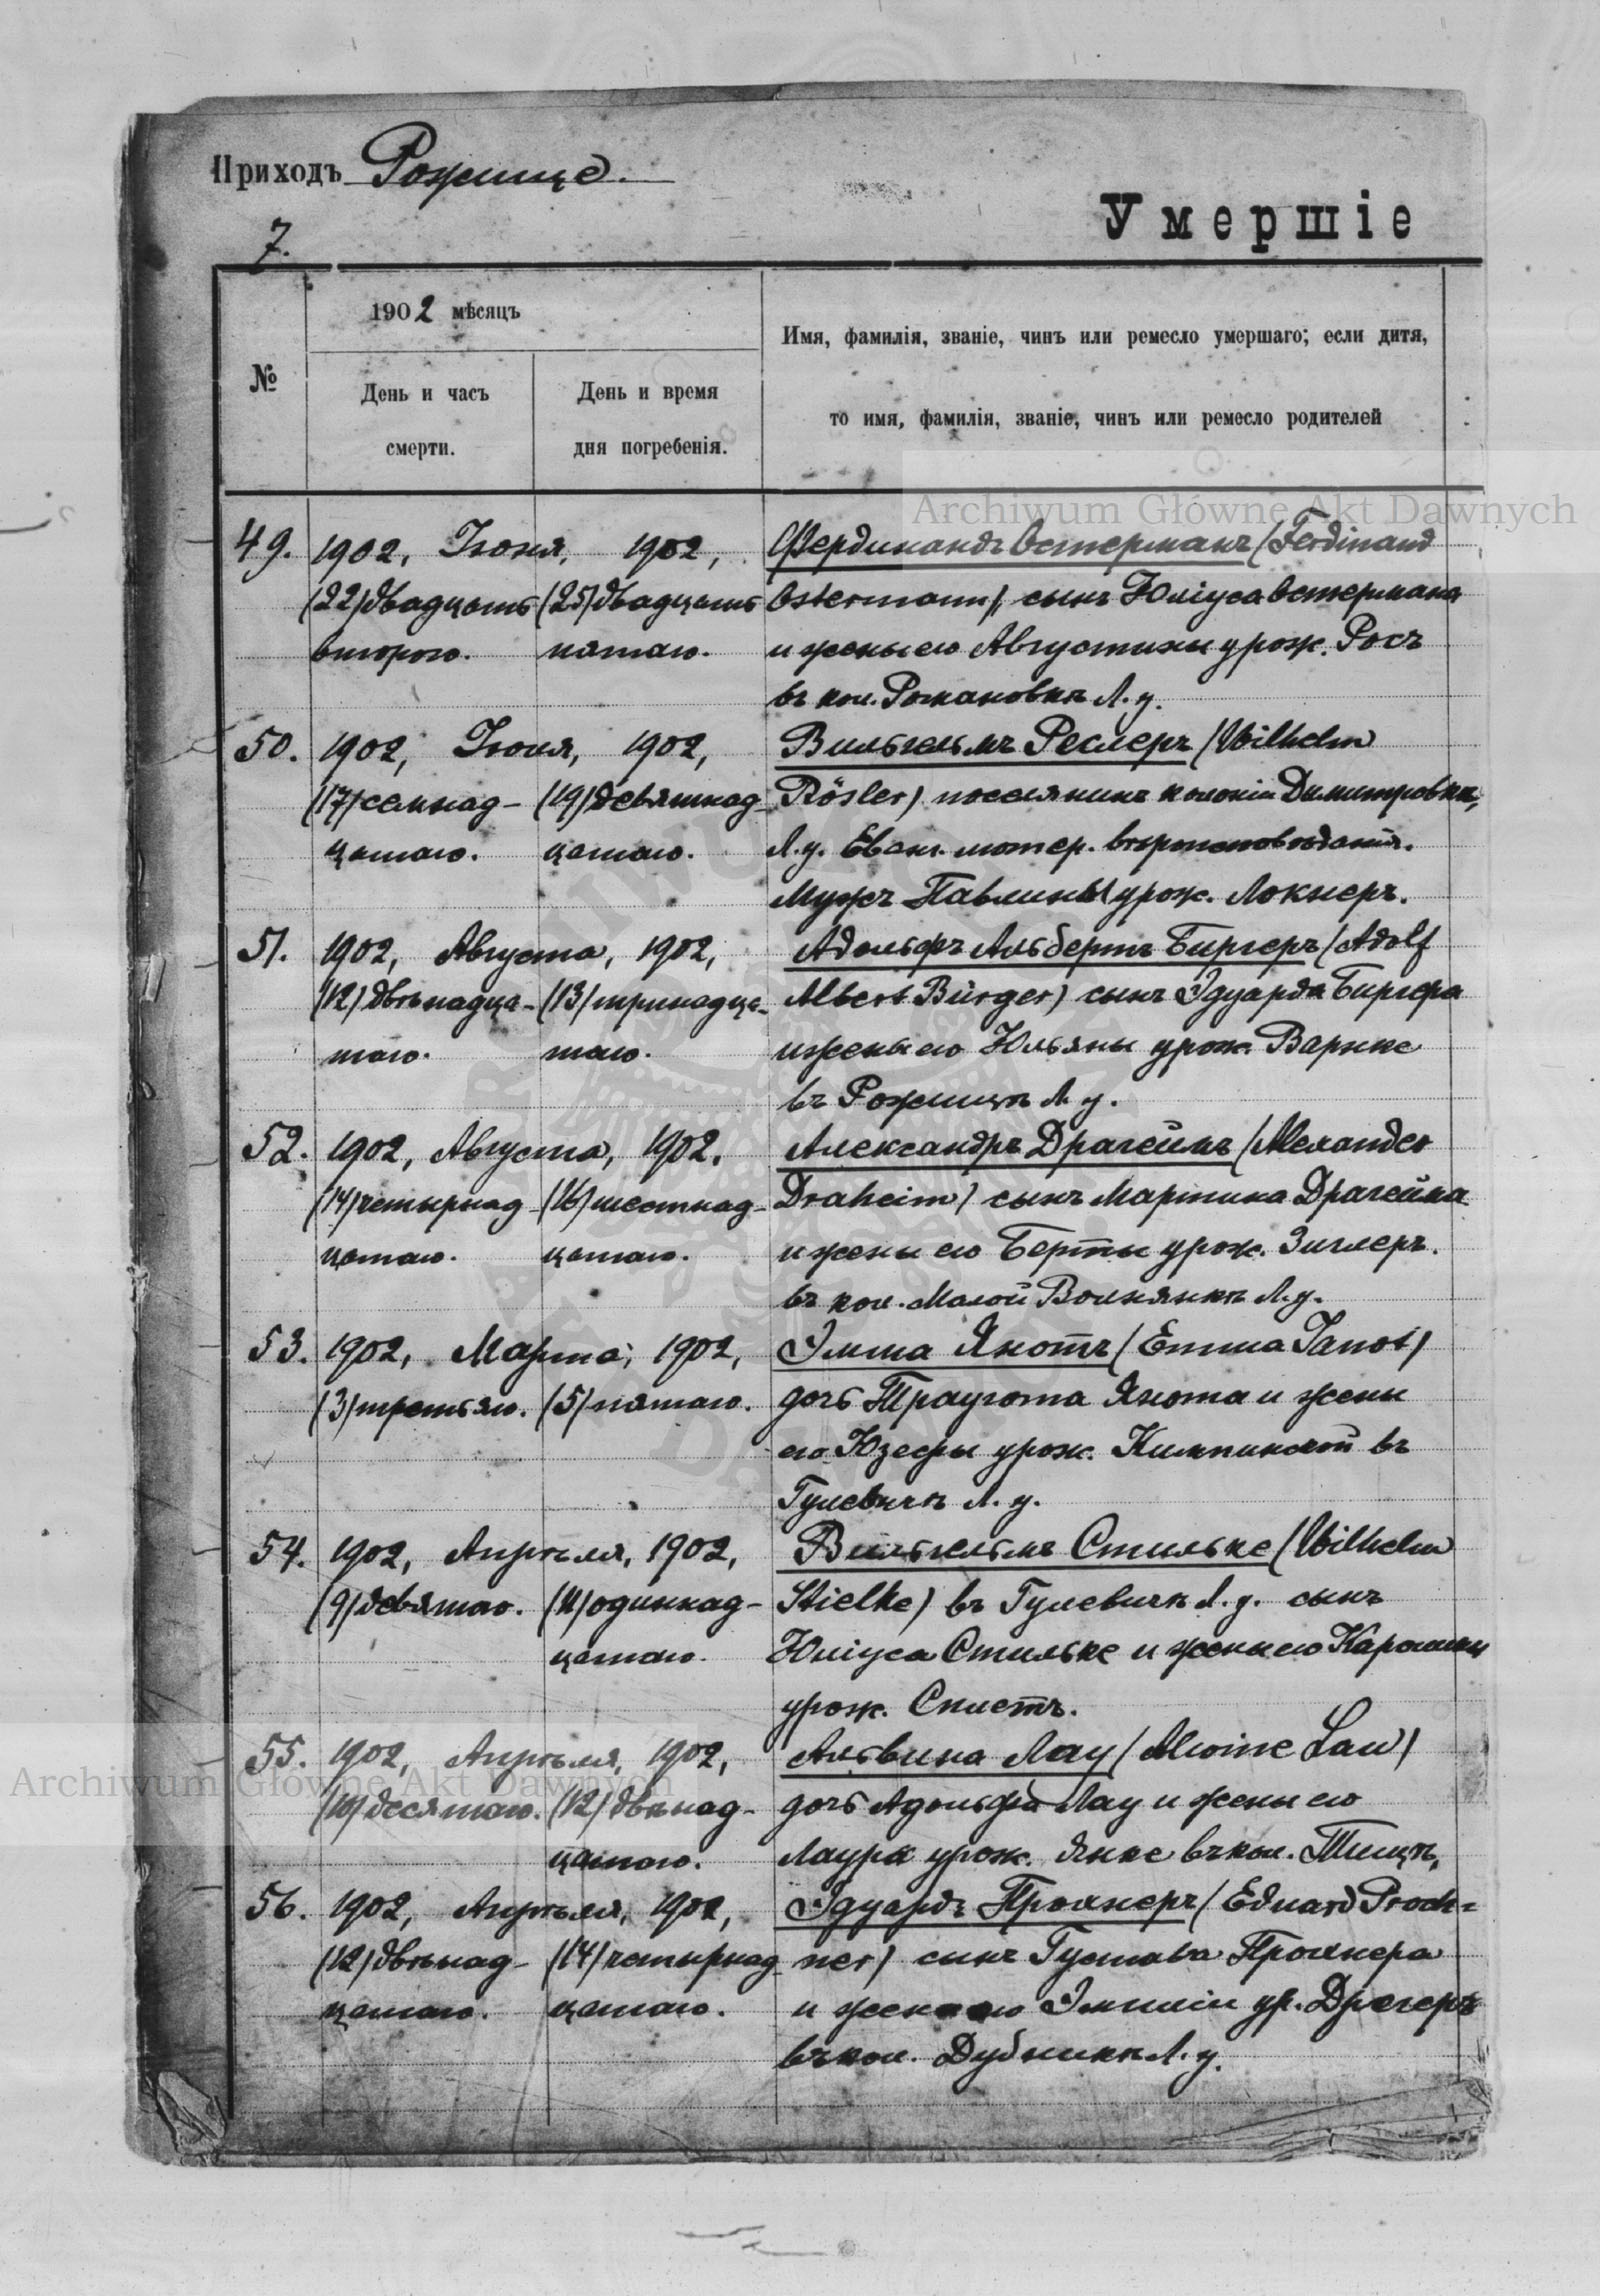 Приходъ Рожище.
Умершіе
7.
№
1902 мѣсяцъ
День и часъ
смерти.
День и время
дня погребенія.
Имя, фамилія, званіе, чинъ или ремесло умершаго; если дитя,
то имя, фамилія, званіе, чинъ или ремесло родителей
Archiwum Główne Akt Dawnych
49. 1902, Іюня, 1902, Фердинандъ Остерманъ (Ferdinand
(22) двадцать (25) двадцать Ostermann), сынъ Юліуса Остермана
второго. пятаго. и жены его Августины урож. Росъ
въ кол. Романовкѣ Л. у.
50. 1902, Іюля, 1902, Вильгельмъ Реслеръ (Wilhelm
(17) семнад- (19) девятнад- Rösler) поселянинъ колоніи Димитровки,
цатаго. цатаго. Л. у. Еванг. лютер. вѣроисповѣданія.
Мужъ Павлины урож. Локнеръ.
51. 1902, Августа, 1902, Адольфъ Альбертъ Биргеръ (Adolf
(12) двѣнадца- (13) тринадца- Albert Bürger) сынъ Эдуарда Биргера
таго. таго. и жены его Юльяны урож. Варнке
въ Рожищѣ Л. у.
52. 1902, Августа, 1902. Александръ Драгеймъ (Alexander
(14) четырнад (16) шестнад- Draheim) сынъ Мартина Драгейма
цатаго. цатаго. и жены его Берты урож. Зиглеръ.
въ кол. Малой Волнянкѣ Л. у.
53. 1902, Марта, 1902, Эмма Янотъ (Emma Janot)
(3) третьяго. (5) пятаго. дочь Трауготa Янота и жены
его Юзефы урож. Кимпинской въ
Гулевичѣ Л. у.
54. 1902, Апрѣля, 1902, Вильгельмъ Стильке (Wilhelm
(9) девятаго. (11) одиннад- Stielke) въ Гулевичѣ Л. у. сынъ
цатаго. Юліуса Стильке и жены его Каролины
урож. Спистъ.
55. 1902, Апрѣля, 1902, Альвина Лау (Alwine Lau)
Archiwum Główne Akt Dawnych
(10) десятаго. (12) двѣнад- дочь Адольфа Лау и жены его
цатаго. Лауры урож. Янке въ кол.
56. 1902, Апрѣля, 1902, Эдуардъ Прохнеръ (Eduard Proch=
(12) двѣнад- (14) четырнад- ner) сынъ Густава Прохнера
цатаго. цатаго. и жены его Эмиліи ур. Дрегеръ
въ кол. Дубники Л. у.